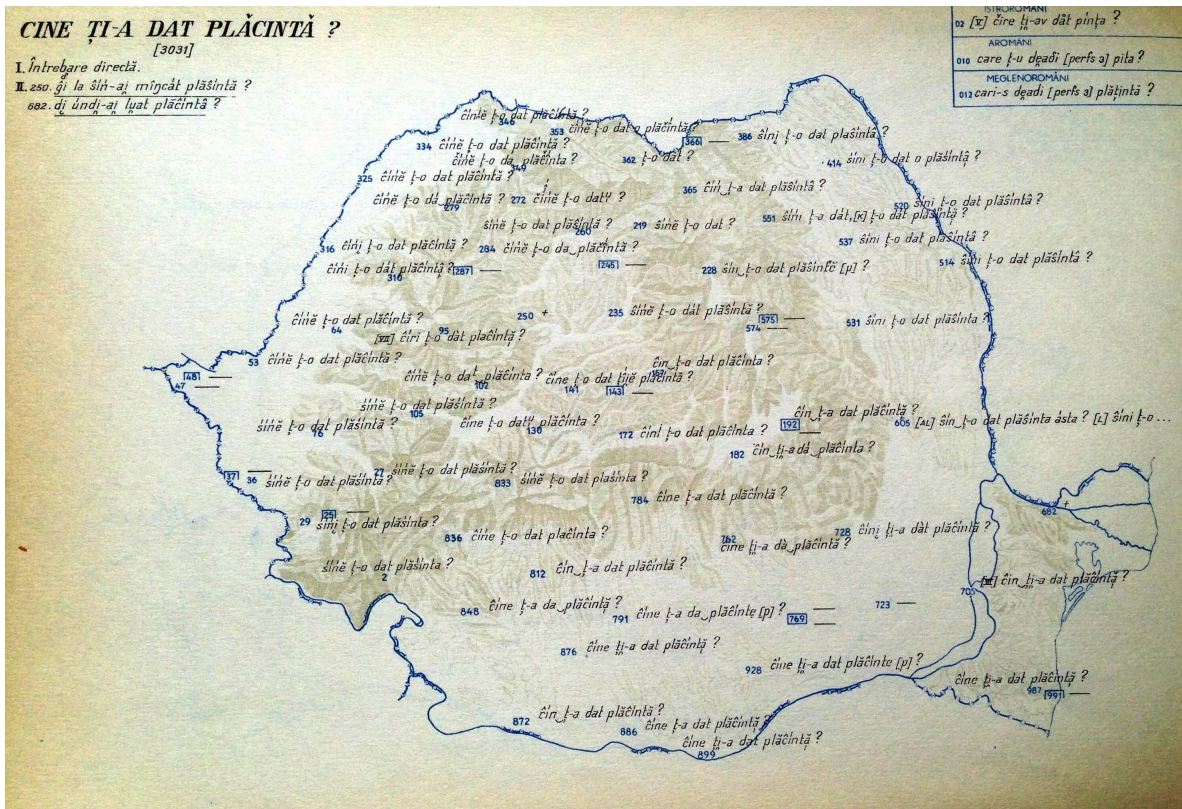 CINE ȚI-A DAT PLĂCINTĂ ?
[3031]
I. Întrebare directă.
II. 250. ĝi la śiń-ai mîncát plăśintă ?
682. di̯ úndi̯-ai lu̯at plăĉintâ ?
ISTROROMÂNI
02 [V] čire ț̦i-av dåt pínța ?
AROMÂNI
010 care ț-u dea̯di [perfs 3] pita ?
MEGLENOROMÂNI
012 cari-s dea̯di [perfs 3] plățintă ?
ĉińĕ ț-o dat plăĉintă ?
346
353 ĉińĕ ț-o dat o plăĉintă ?
334 ĉińĕ ț-o dat plăĉintă ?
366 —
386 śini̯ ț-o dat plaśintâ ?
ĉińĕ ț-o da‿plăĉinta ?
349
362 ț-o dat ?
414 śini ț-o dat o plăśintă ?
325 ĉińĕ ț-o dat plăĉintă ?
365 ĉin‿ț-a dat plăśintă ?
ĉińĕ ț-o dá‿plăĉintă ?
279
272 ĉińĕ ț-o datᵘ ?
520 śini ț-o dat plăśintă ?
śińĕ ț-o dat plăśintă ?
260
219 śińĕ ț-o dat ?
551 śini ț-a dát,[K] ț-o dat plaśintă ?
316 ĉińi̯ ț-o dat plăĉintă ?
284 ĉińĕ ț-o da‿plăĉintă ?
537 śini ț-o dat plaśintă ?
ĉińi ț-o dát plăĉintă ?
310
287 —
245 —
228 śin‿ț-o dat plăśintĕ [p]
514 śini ț-o dat plăśintă ?
ĉińĕ ț-o dat plăĉintă ?
64
250 +
235 śińĕ ț-o dát plăśintă ?
575 —
574 —
531 śini ț-o dat plaśintă ?
95
[VII] ĉiri ț-o dàt plaĉintă ?
53 ĉińĕ ț-o dat plăĉintă ?
48 —
47 —
ĉińĕ ț-o dat plăĉinta ?
102
ĉin‿ț-o dat plăĉinta ?
ĉine ț-o dat țíi̯ĕ plăĉintă ?
141
143 —
śińĕ ț-o dat plăśintă ?
105
śińĕ ț-o dat plăśintă ?
76
ĉine ț-o datᵘ plăĉinta ?
130
172 ĉini ț-o dat plăĉinta ?
ĉin‿ț-a dat plăĉintă ?
192 —
605 [AL] śin‿ț-o dat plăśinta ásta ? [L] śini ț-o ...
182 ĉin‿ți̯-a dá‿plăĉinta ?
37 —
36 śińĕ ț-o dat plăśintă ?
27 śińĕ ț-o dat plăśinta ?
833 śińĕ ț-o dat plaśinta ?
784 ĉine ț-a dat plăĉintă ?
25 —
29 śińi̯ ț-o dat plăśinta ?
682 +
836 ĉińe ț-o dat plaĉinta ?
762
ĉine ți̯-a dà‿plăĉintă ?
728 ĉini̯ ți̯-a dàt plăĉintă ?
śińĕ ț-o dat plăśinta ?
2
812 ĉin‿ț-a dat plăĉintă ?
705 ĉin‿ți̯-a dat plăĉintă ?
848 ĉine ț-a da‿plăĉintă ?
791 ĉine ț-a da‿plăĉinte [p]
769 —
723 —
876 ĉine ți̯-a dat plăĉintă ?
928 ĉine ți̯-a dat plăĉinte [p]
ĉine ți̯-a dat plăĉintă ?
987
991 —
872 ĉin‿ț-a dat plăĉintă ?
886 ĉine ț-a dat plăĉintă ?
ĉine ți̯-a dat plăĉintă ?
899